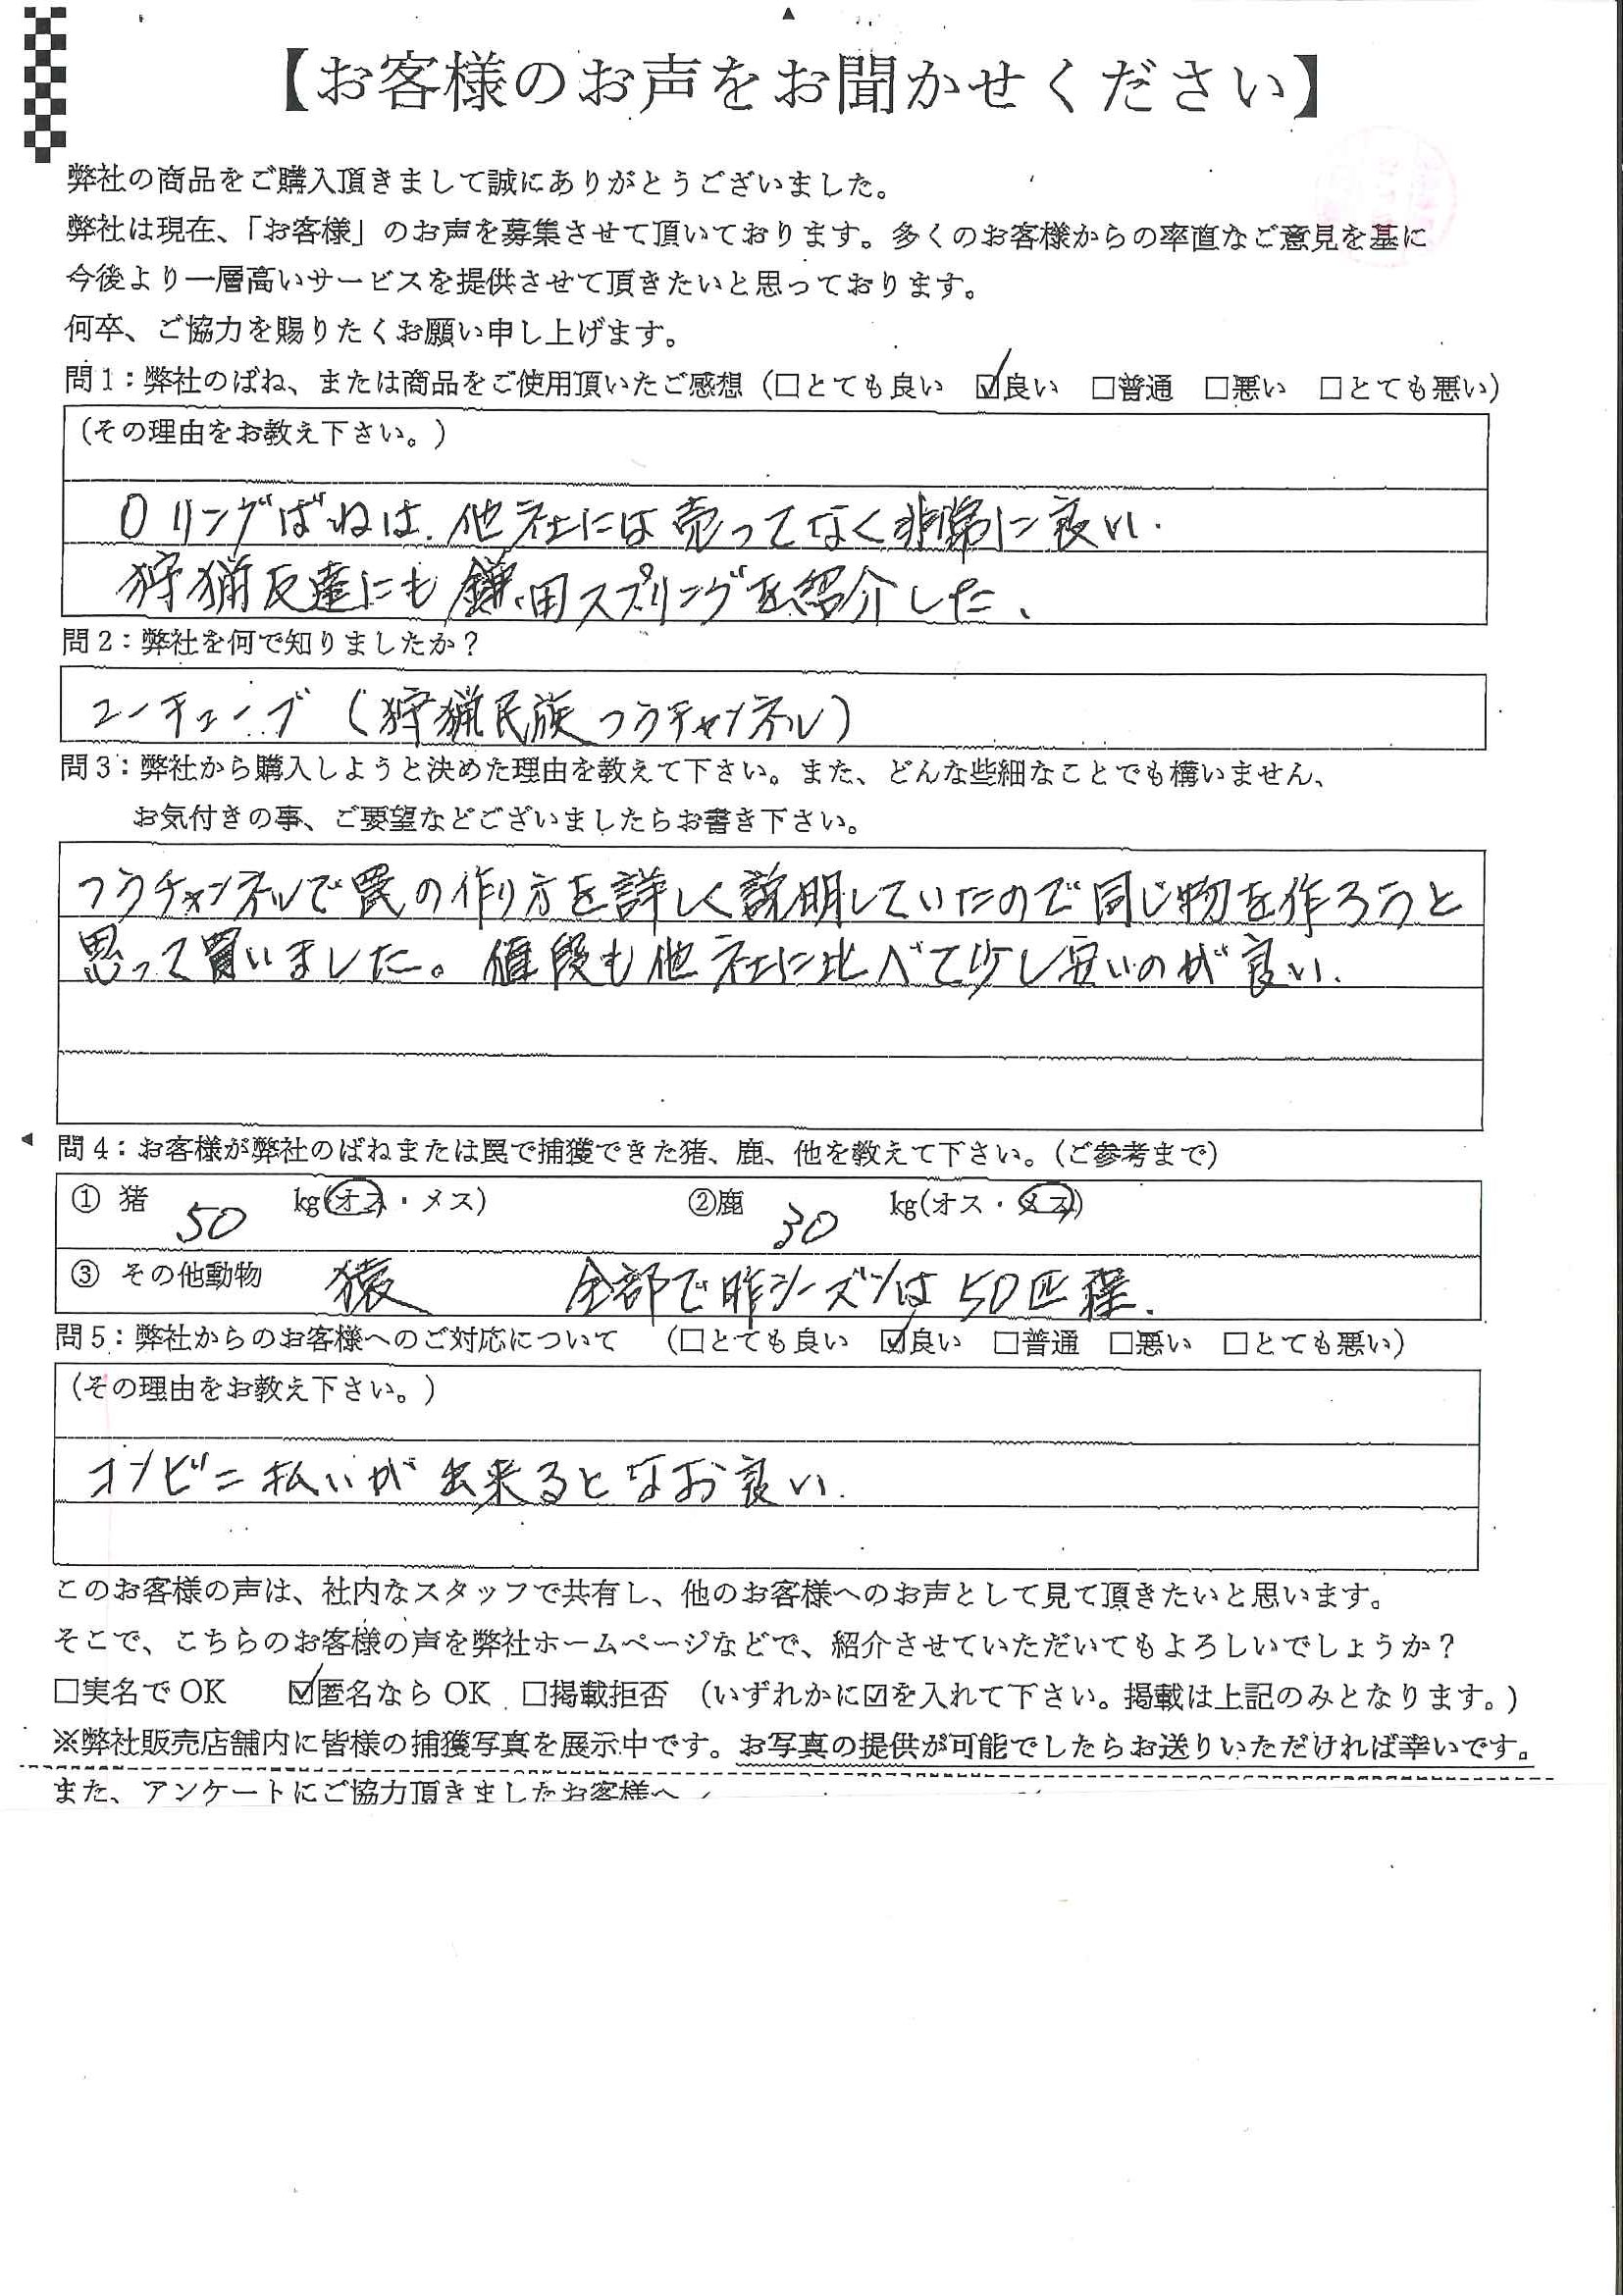 【お客様のお声をお聞かせください】
弊社の商品をご購入頂きまして誠にありがとうございました。
弊社は現在、「お客様」のお声を募集させて頂いております。多くのお客様からの率直なご意見を基に
今後より一層高いサービスを提供させて頂きたいと思っております。
何卒、ご協力を賜りたくお願い申し上げます。
問1：弊社のばね、または商品をご使用頂いたご感想（□とても良い ☑良い □普通 □悪い □とても悪い）
（その理由をお教え下さい。）
Oリングばねは、他社には売ってなく非常に良い.
狩猟友達にも鎌田スプリングを紹介した、
問2：弊社を何で知りましたか？
ユーチューブ（狩猟民族フラチャンネル）
問3：弊社から購入しようと決めた理由を教えて下さい。また、どんな些細なことでも構いません、
お気付きの事、ご要望などございましたらお書き下さい。
フラチャンネルで罠の作り方を詳しく説明していたので同じ物を作ろうと
思って買いました。値段も他社に比べて少し安いのが良い.
問4：お客様が弊社のばねまたは罠で捕獲できた猪、鹿、他を教えて下さい。（ご参考まで）
① 猪 50 kg(オス・メス) ②鹿 30 kg(オス・メス)
③ その他動物 猿 全部で昨シーズンは50匹程.
問5：弊社からのお客様へのご対応について （□とても良い ☑良い □普通 □悪い □とても悪い）
（その理由をお教え下さい。）
コンビニ払いが出来るとなお良い.
このお客様の声は、社内なスタッフで共有し、他のお客様へのお声として見て頂きたいと思います。
そこで、こちらのお客様の声を弊社ホームページなどで、紹介させていただいてもよろしいでしょうか？
□実名でOK ☑匿名ならOK □掲載拒否 （いずれかに☑を入れて下さい。掲載は上記のみとなります。）
※弊社販売店舗内に皆様の捕獲写真を展示中です。お写真の提供が可能でしたらお送りいただければ幸いです。
また、アンケートにご協力頂きましたお客様へ